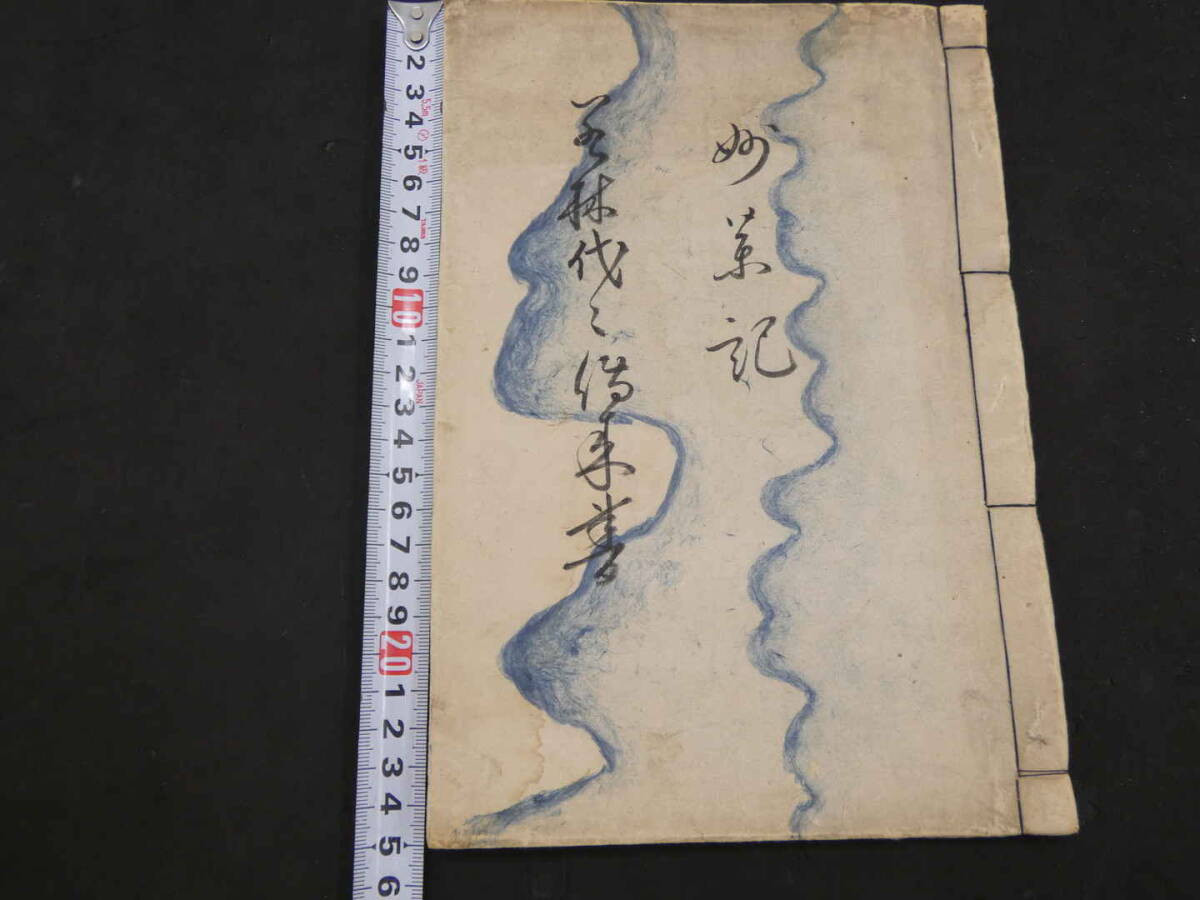 妙薬記
若林代々傳来書
2 3 4 5 6 7 8 9 10 1 2 3 4 5 6 7 8 9 20 1 2 3 4 5 6
5.5m
1級
JAPAN